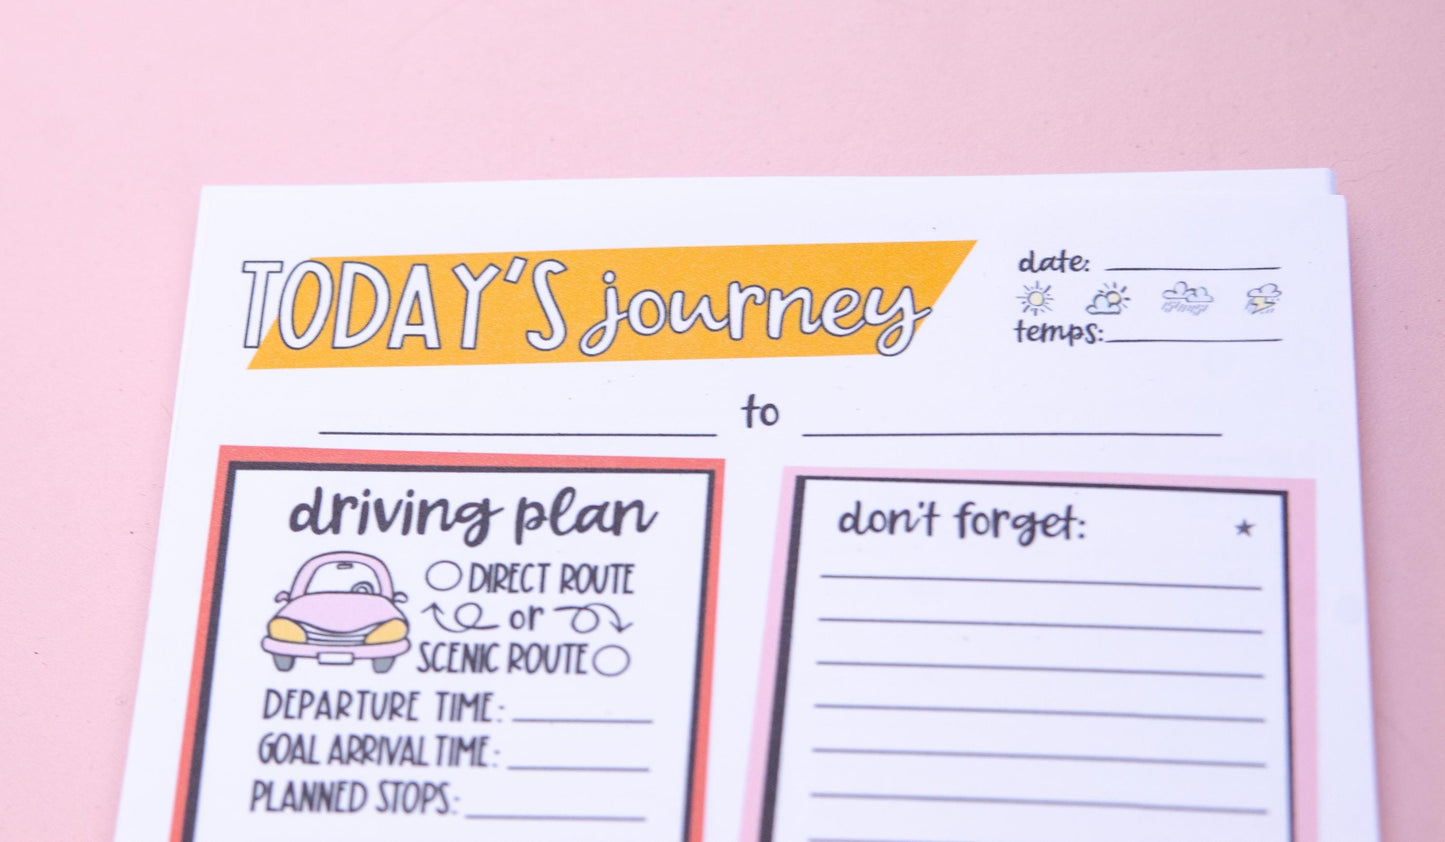 TODAY'S journey
date:
temps:
to
driving plan
DIRECT ROUTE
or
SCENIC ROUTE
DEPARTURE TIME:
GOAL ARRIVAL TIME:
PLANNED STOPS:
don't forget: